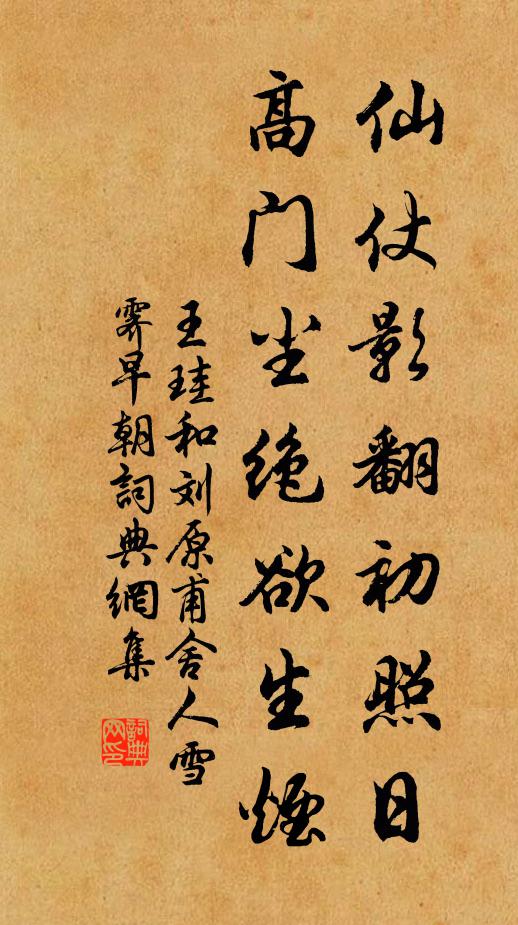 仙仗影翻初照日
高门尘绝欲生烟
王珪和刘原甫舍人雪
霁早朝詞典網集
詞典
网印